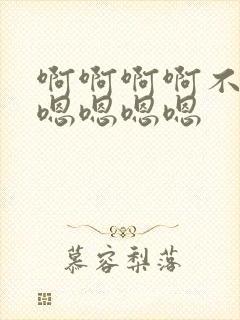 啊啊啊啊不
嗯嗯嗯嗯
慕容梨落